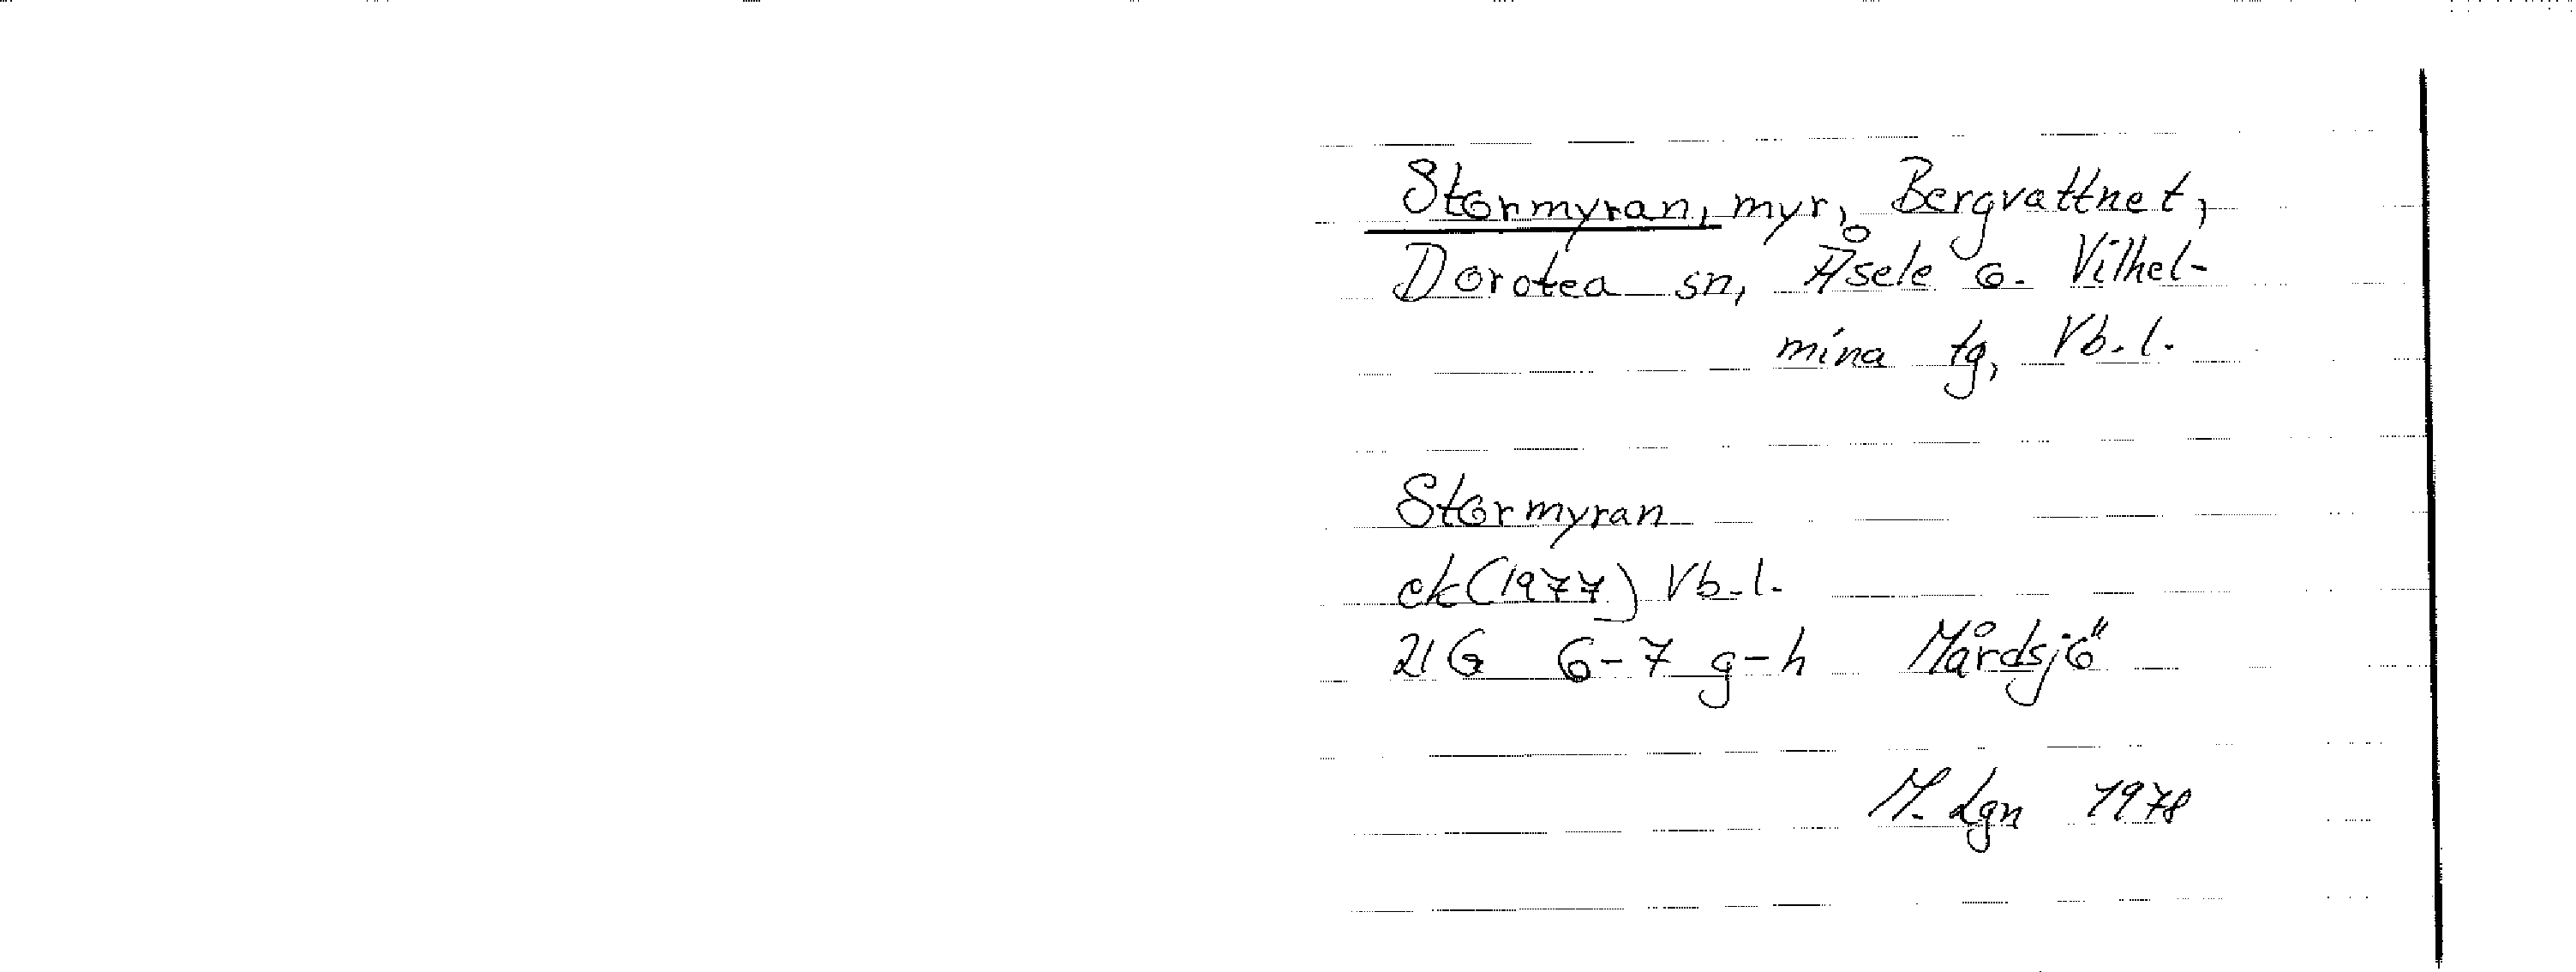 Stormyran, myr, Bergvattnet,
Dorotea sn, Åsele o. Vilhel-
mina tg, Vb. l.
Stormyran
ek (1977) Vb. l.
21G 6-7 g-h Mårdsjö
M. Lgn 1978